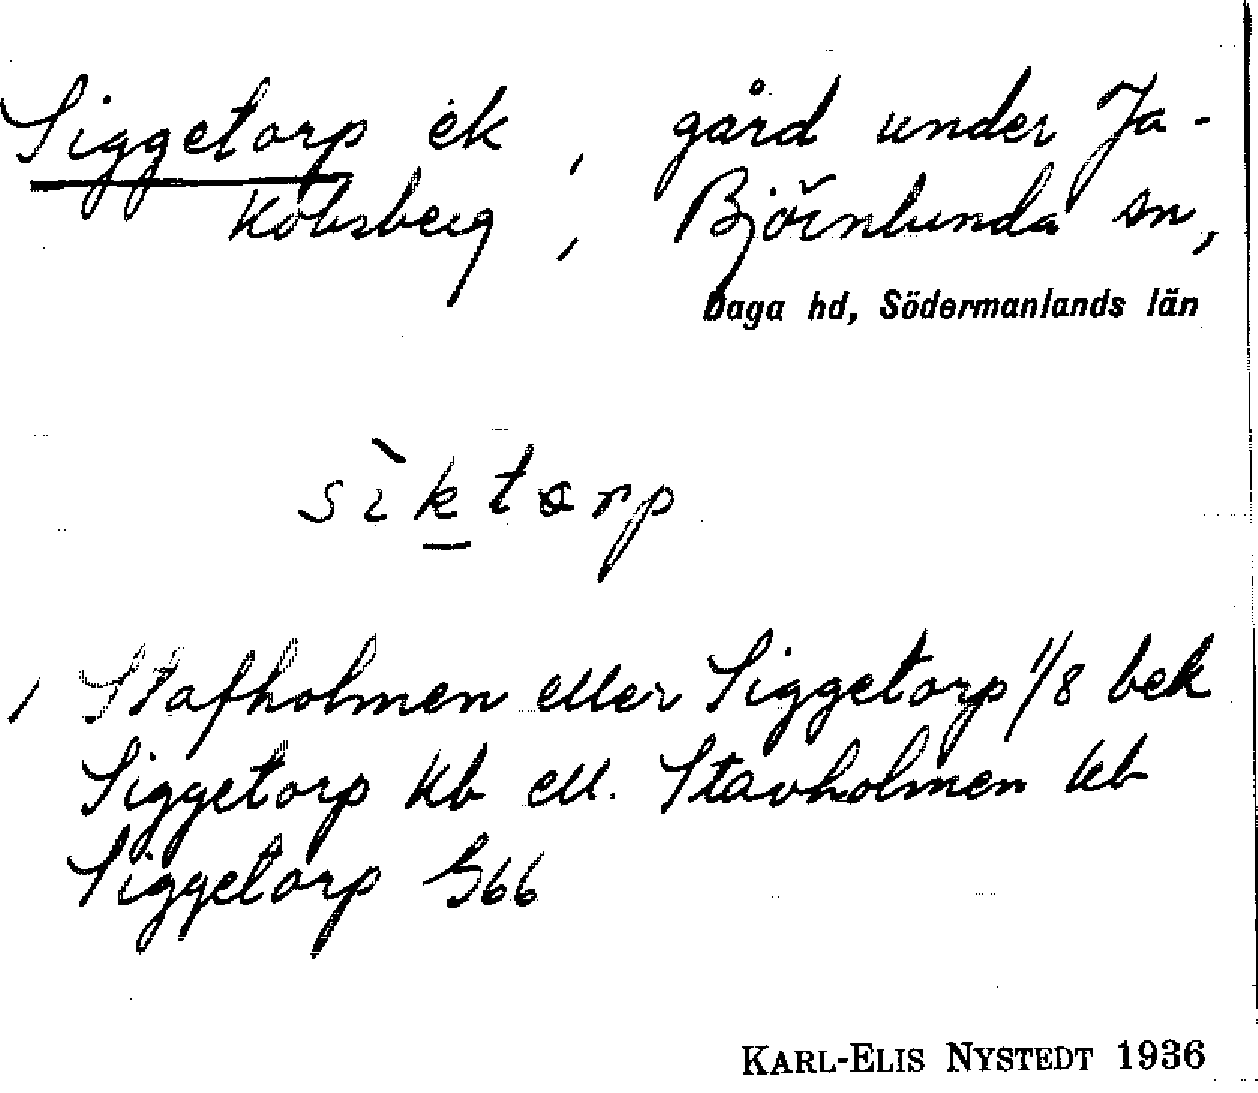 Siggetorp ek, gård under Ja-
kobsberg, Björnlunda sn,
Daga hd, Södermanlands län
sìktorp
/ Stafholmen eller Siggetorp 1/8 bek
Siggetorp kb ell. Stavholmen kb
Siggetorp G66
KARL-ELIS NYSTEDT 1936